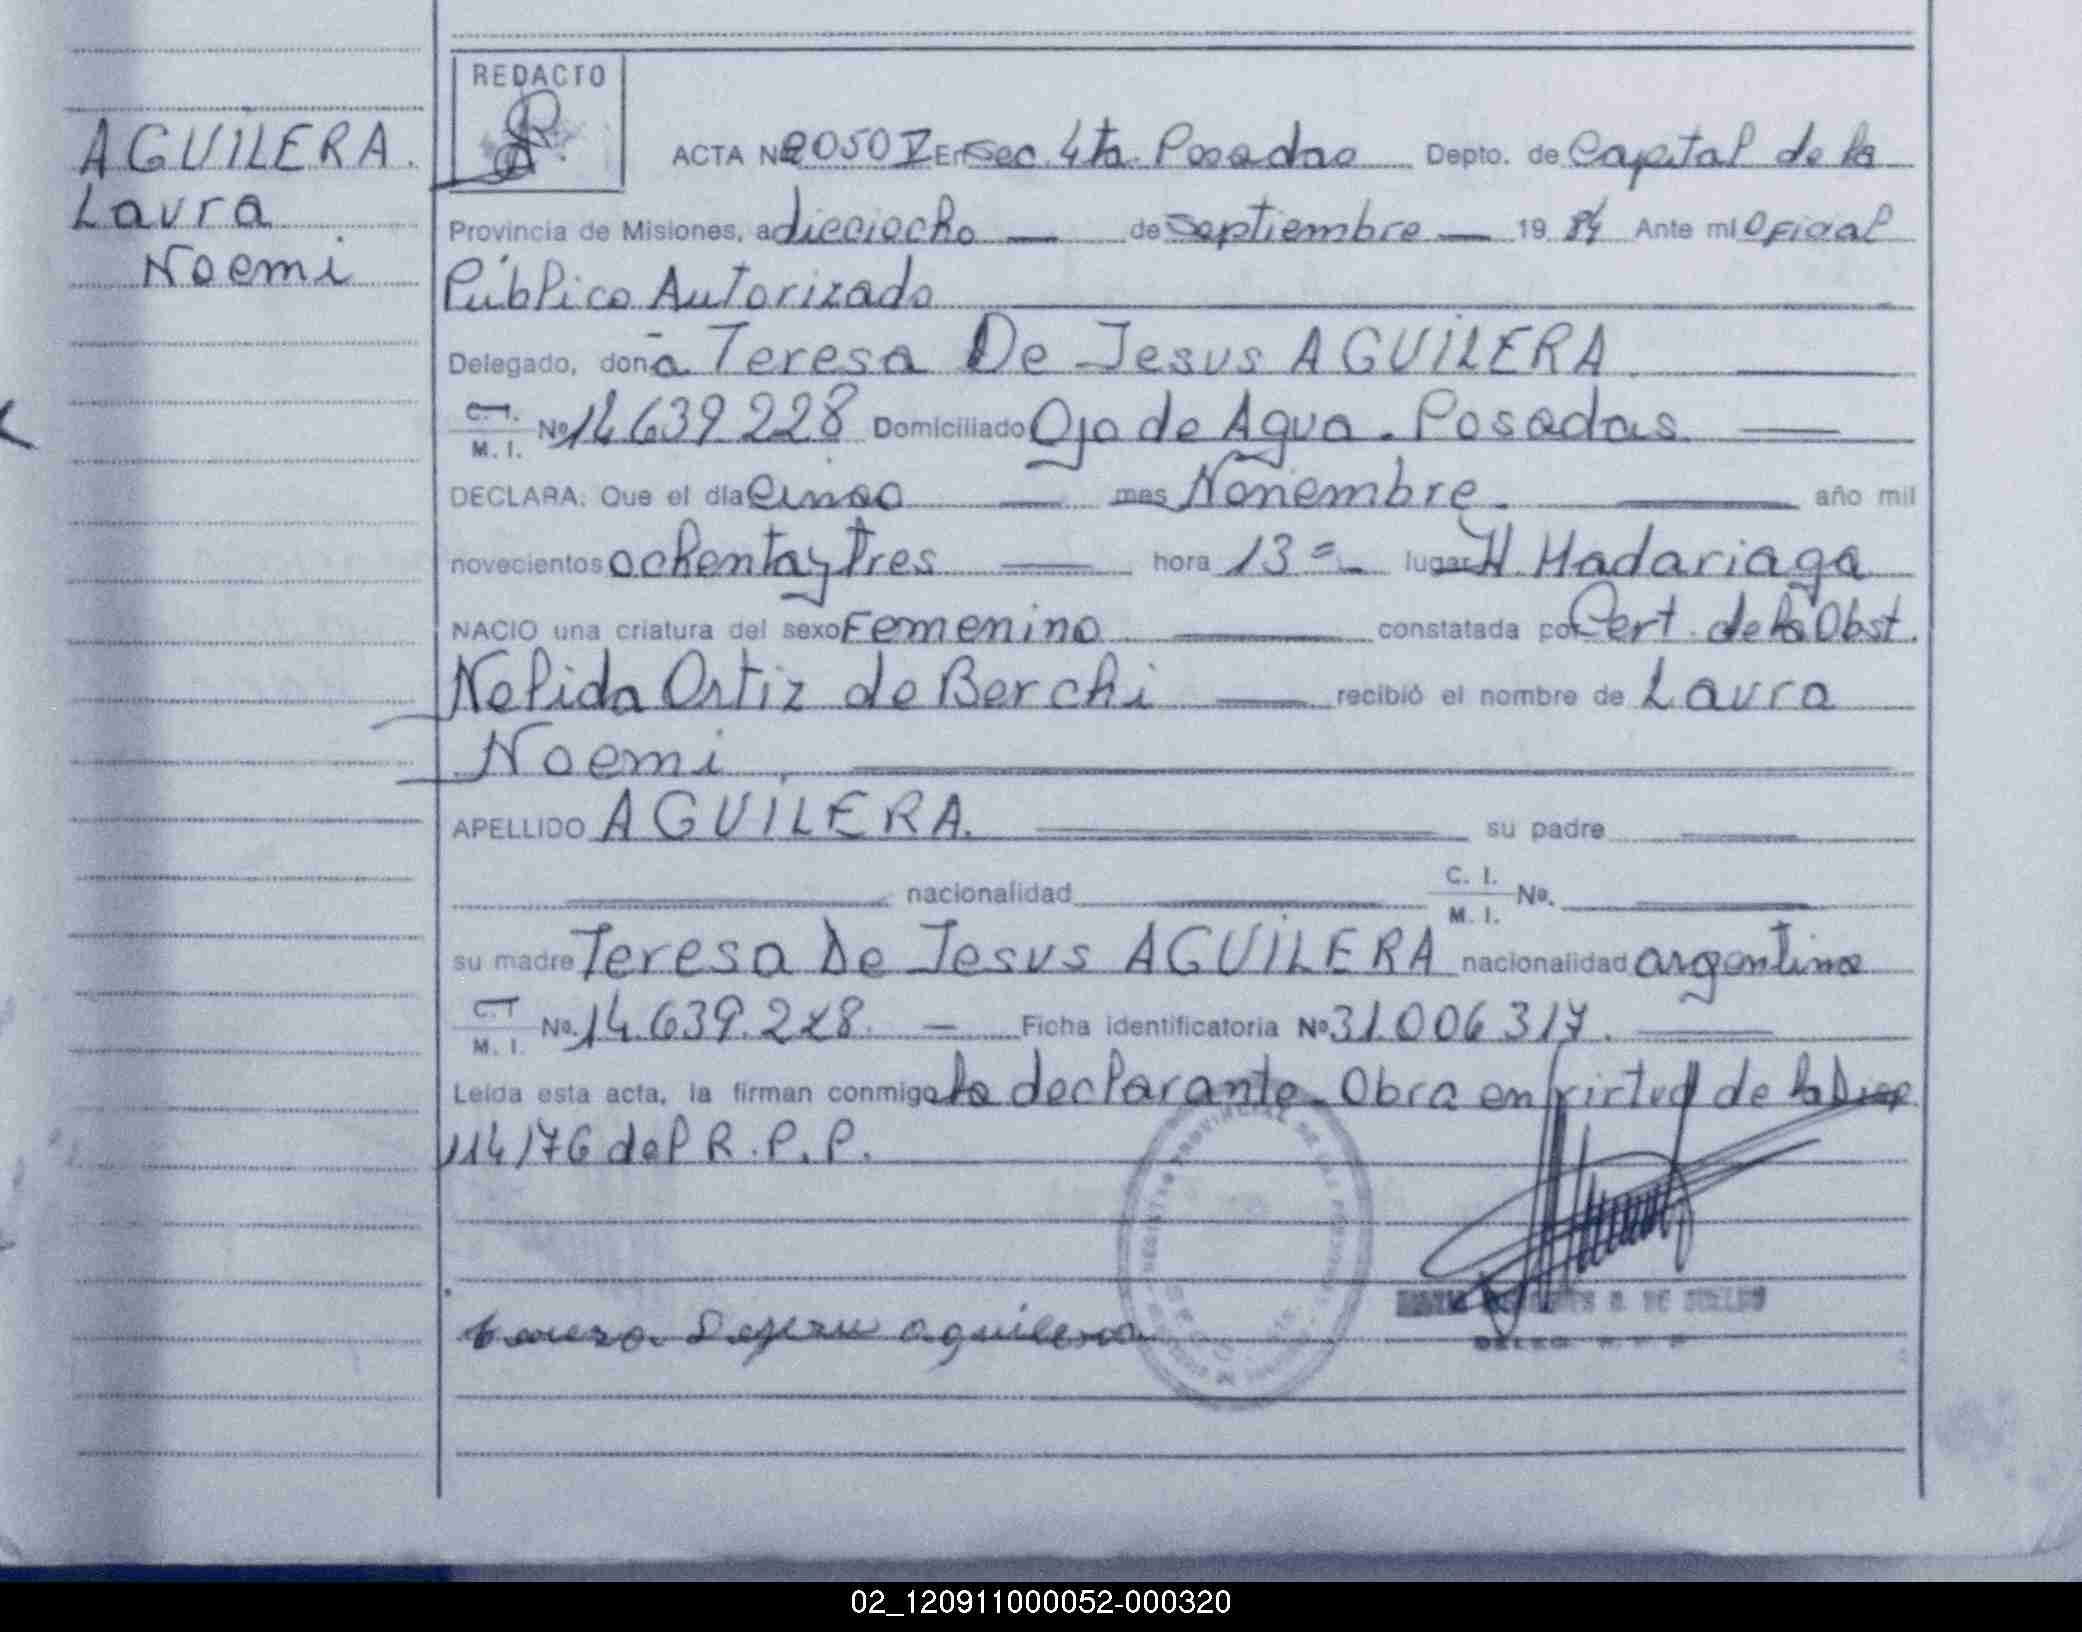 AGUILERA.
Laura
Noemi
REDACTO
ACTA Nº 2050 V En Sec. 4ta. Posadas Depto. de Capital de la
Provincia de Misiones, a dieciocho — de septiembre — 19 84 Ante mi Oficial
Público Autorizado
Delegado, doña Teresa De Jesus AGUILERA.
C. I.
M. I. Nº 14.639.228 Domiciliado Ojo de Agua. Posadas —
DECLARA: Que el día cinco — mes Noviembre. — año mil
novecientos ochenta y tres — hora 13 = lugar H. Madariaga
NACIO una criatura del sexo Femenino — constatada por Cert. de la Obst.
Nelida Ortiz de Berchi — recibió el nombre de Laura
Noemi.
APELLIDO AGUILERA. — su padre —
— nacionalidad — C. I.
M. I. Nº. —
su madre Teresa De Jesus AGUILERA nacionalidad argentina
C. I.
M. I. Nº. 14.639.228. — Ficha identificatoria Nº 31.006.317. —
Leída esta acta, la firman conmigo la declarante. Obra en virtud de la Disp
114/76 del R.P.P.
REGISTRO PROVINCIAL DE LAS PERSONAS
aguilera
DELEG. R. P. P.
02_120911000052-000320